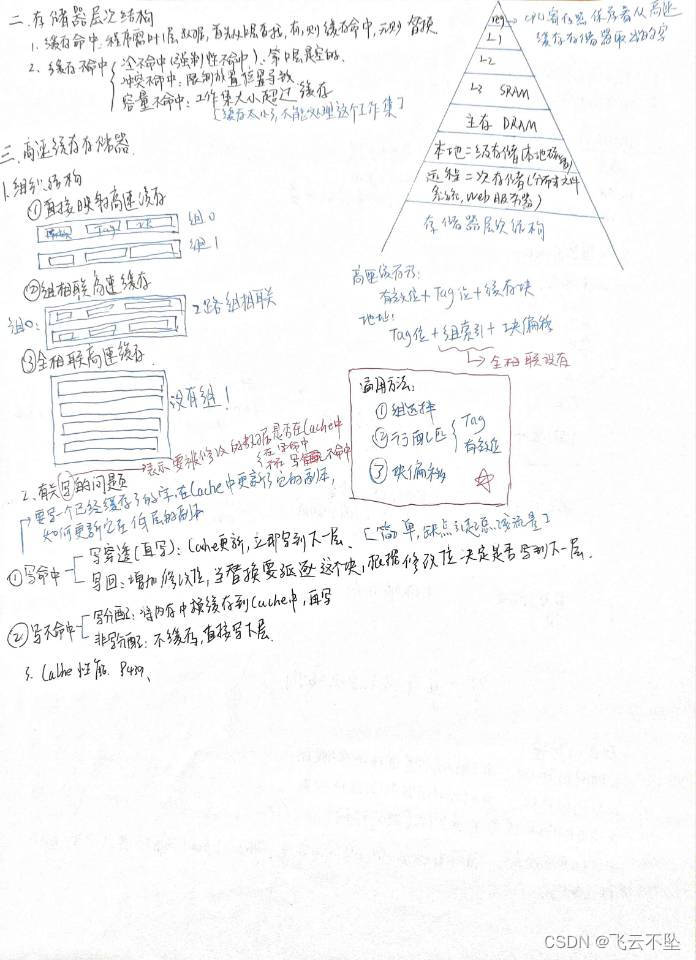 二.存储器层次结构
1.缓存命中:程序需k+1层数据,首先从k层查找,有,则缓存命中,无则替换
2.缓存不命中
冷不命中(强制性不命中):第k层是空的.
冲突不命中:限制放置位置导致
容量不命中:工作集大小超过缓存
[缓存太小了,不能处理这个工作集]
reg
CPU寄存器保存着从高速
缓存存储器取出的字
L1
L2
L3 SRAM
主存 DRAM
本地二级存储(本地磁盘)
远程二次存储(分布式文件
系统,Web服务器)
存储器层次结构
三.高速缓存存储器.
1.组织结构
①直接映射高速缓存
Tag 块
组0
组1
②组相联高速缓存
组0:
2路组相联
③全相联高速缓存.
没有组!
高速缓存行:
有效位+Tag位+缓存块
地址:
Tag位+组索引+块偏移
全相联没有
通用方法:
①组选择
②行匹配
Tag
有效位
③块偏移
表示要被修改的数据是否在Cache中
在 写命中
不在 写不命中
2.有关写的问题
要写一个已经缓存了的字,在Cache中更新了它的副本,
如何更新它在低层的副本
①写命中
写穿透(直写):Cache更新,立即写到下一层.
[简单,缺点引起总线流量]
写回:增加修改位,当替换要驱逐这个块,根据修改位决定是否写到下一层.
②写不命中
写分配:将内存中块缓存到Cache中,再写
非写分配:不缓存,直接写下层.
3.Cache性能. P439、
CSDN @飞云不坠